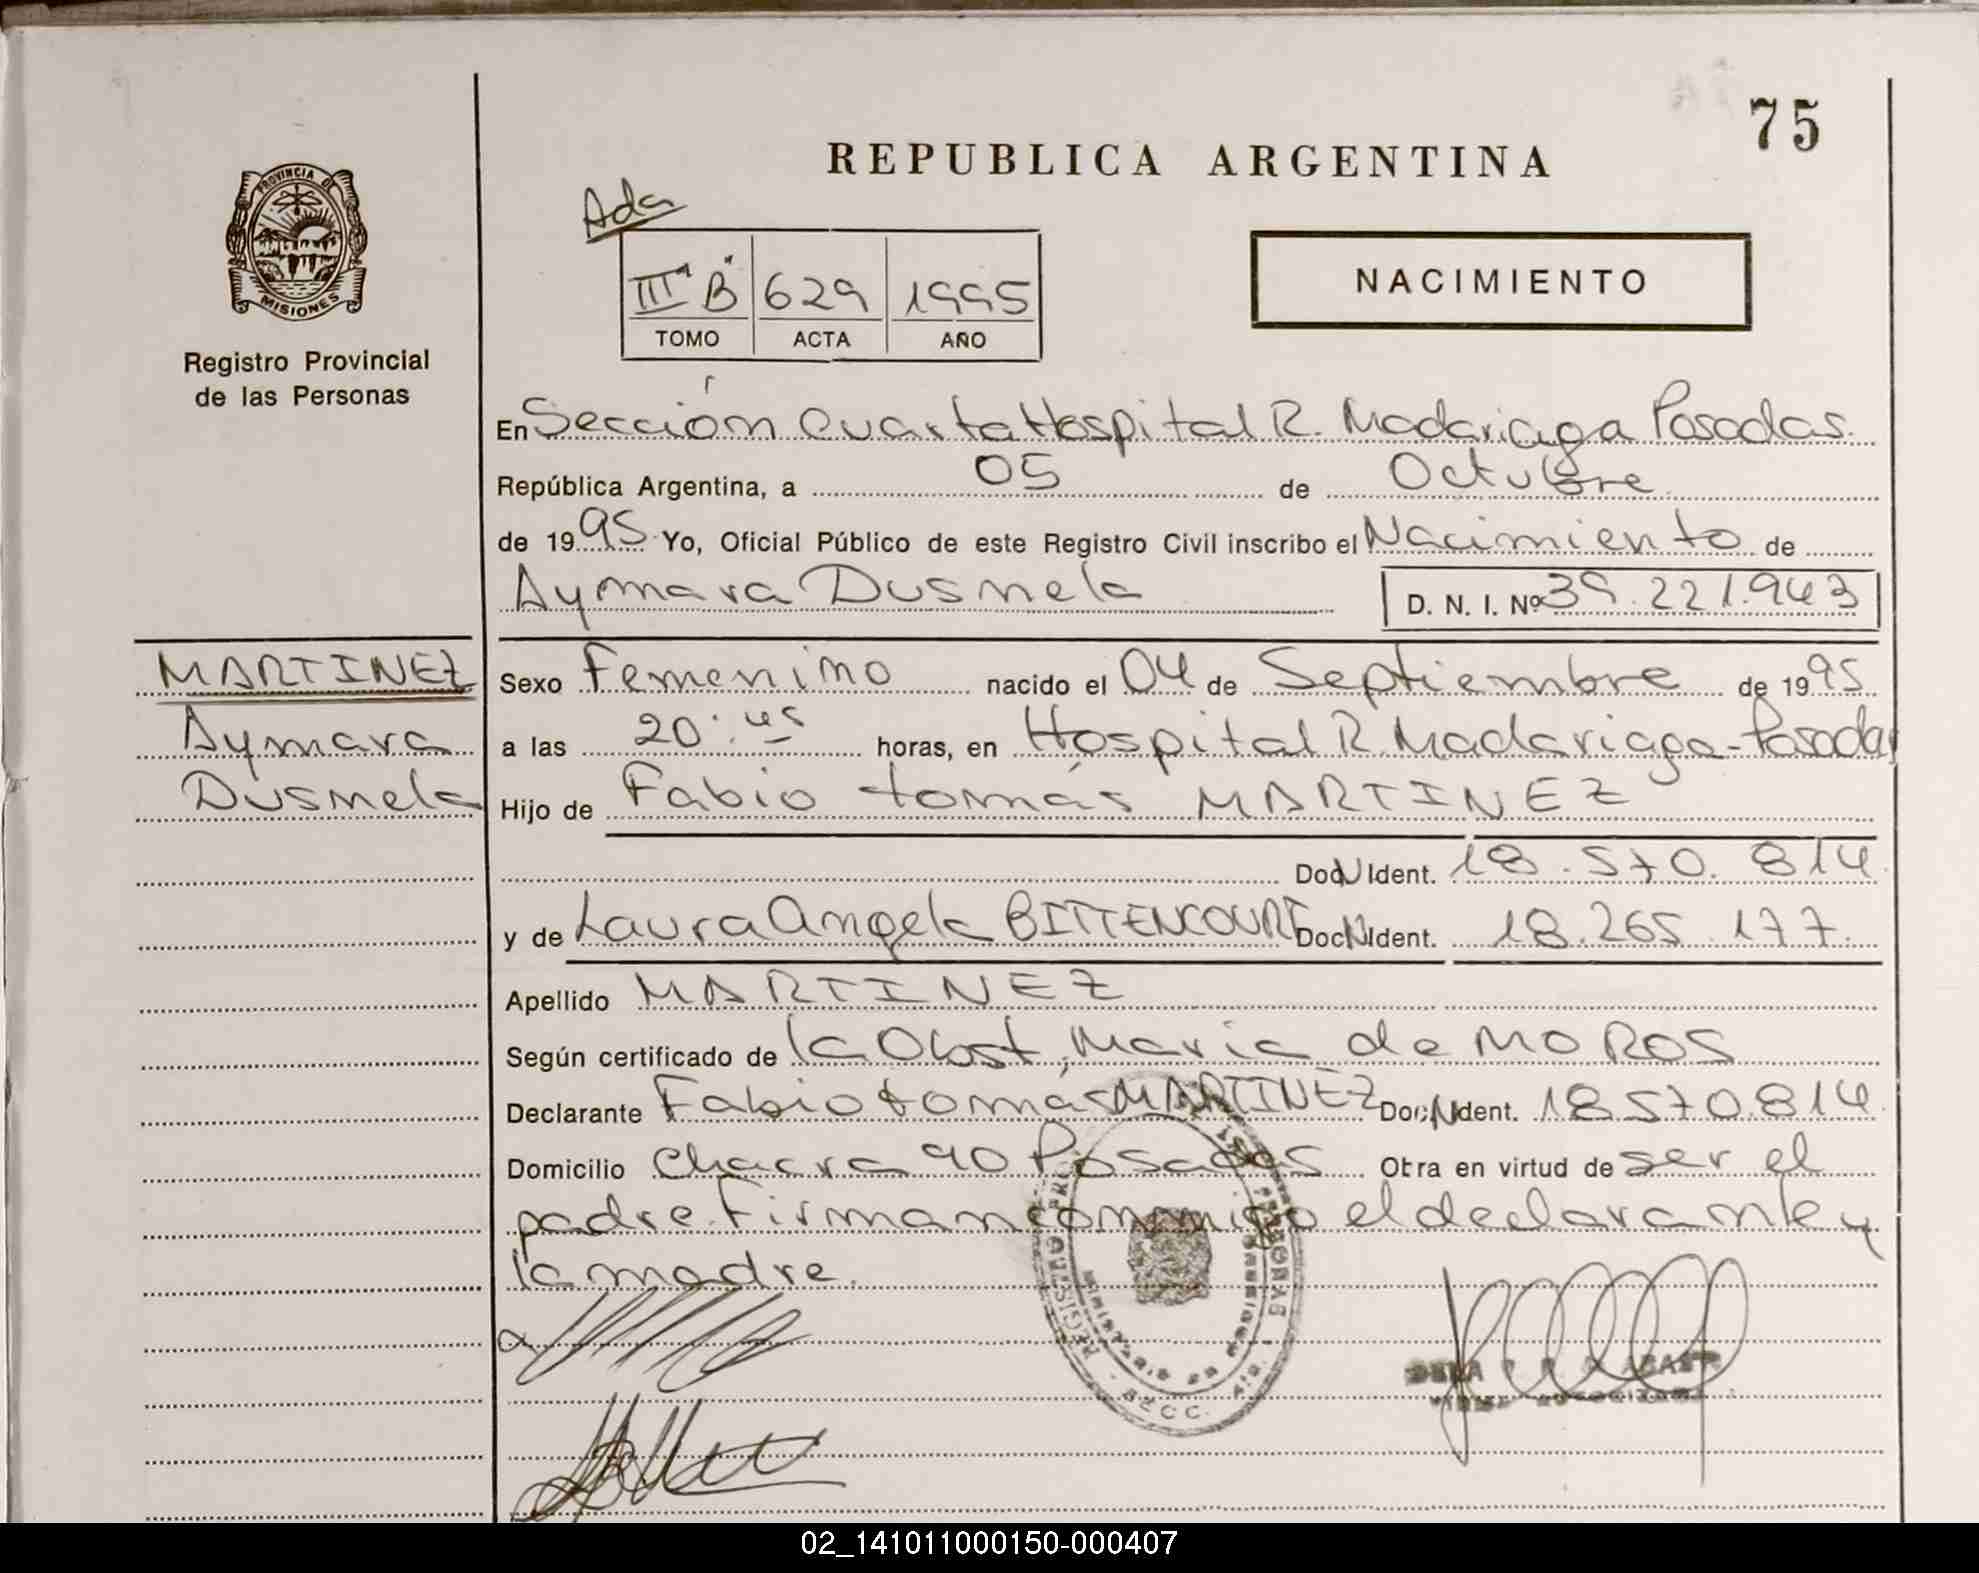 75
REPUBLICA ARGENTINA
PROVINCIA DE
MISIONES
Registro Provincial
de las Personas
Ada
III "B" 629 1995
TOMO ACTA AÑO
NACIMIENTO
En Sección Cuarta Hospital R. Madariaga Posadas.
República Argentina, a 05 de Octubre
de 1995 Yo, Oficial Público de este Registro Civil inscribo el Nacimiento de
Aymara Dusnela D. N. I. Nº 39.221.943
MARTINEZ
Aymara
Dusnela
Sexo Femenino nacido el 04 de Septiembre de 1995
a las 20:45 horas, en Hospital R. Madariaga-Posadas
Hijo de Fabio tomás MARTINEZ
Doc. N Ident. 18.570.814
y de Laura Angela BITTENCOURT Doc. N Ident. 18.265.177.
Apellido MARTINEZ
Según certificado de la Obst, María de MOROS
Declarante Fabio tomás MARTINEZ Doc. N Ident. 18570814
Domicilio Chacra 90 Posadas Otra en virtud de ser el
padre. Firman conmigo el declarante y
la madre.
REGISTRO
02_141011000150-000407